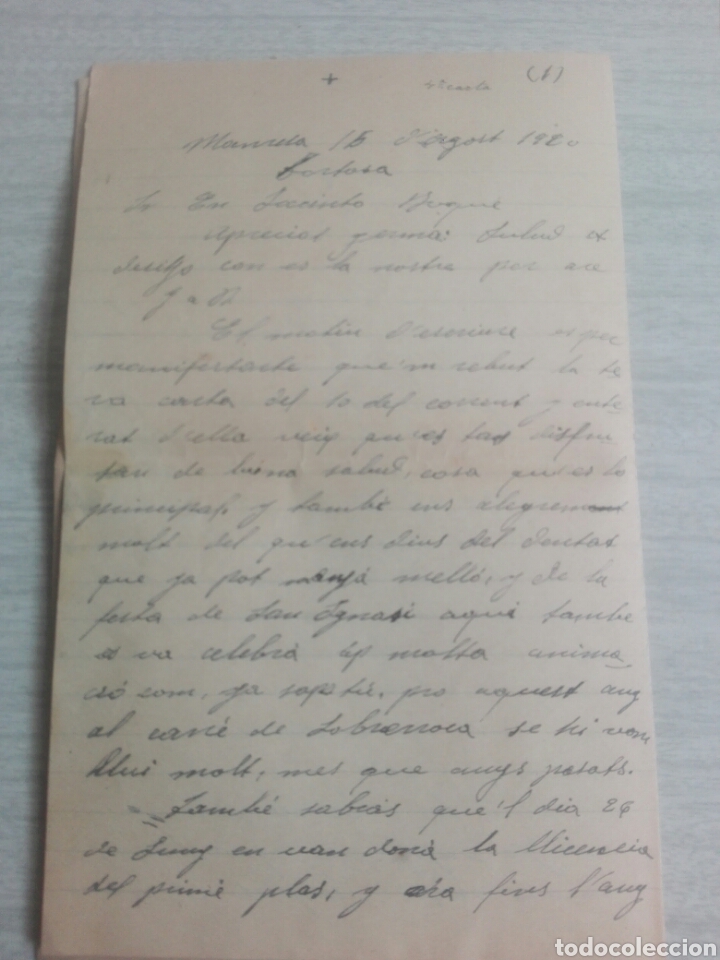 + (1)
Manresa 15 d'Agost 1920
Tortosa
Sr En Jacinto Buqué
Apreciat germá: Salud et
desitjo com es la nostra per ara
El motiu d'escriure es per
manifestarte que'm rebut la te
va carta del 10 del corrent y ente
rat d'ella veig qu'es tas disfru
tan de buena salud, cosa qu'es lo
principal, y també ens alegrem
molt del qu'ens dius del
que ja pot menjá melló, y de la
festa de San Ignasi aquí també
es va celebrá molta anima
ció com, ja saps tú, pro aquest any
al carré de Sobrerroca se hi van
lluí molt, mes que anys pasats.
També sabrás que'l dia 26
de Juny en van doná la llicencia
del primé plas, y ara fins l'any
todocoleccion